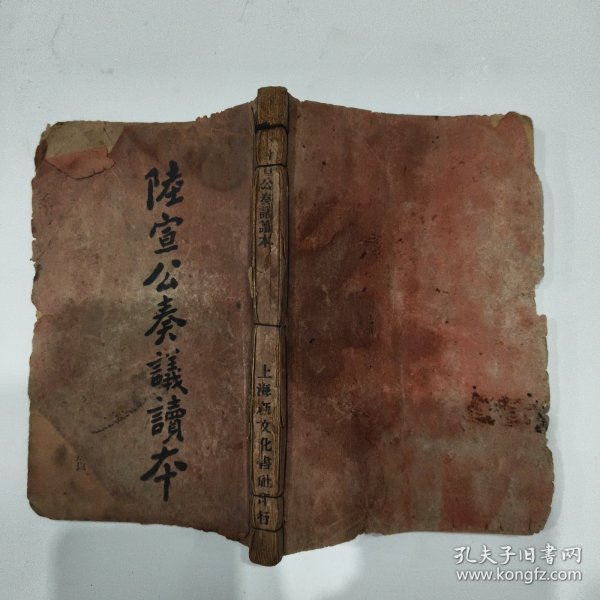 陸宣公奏議讀本
公奏議讀本
上海新文化書社印行
孔夫子旧书网
www.kongfz.com